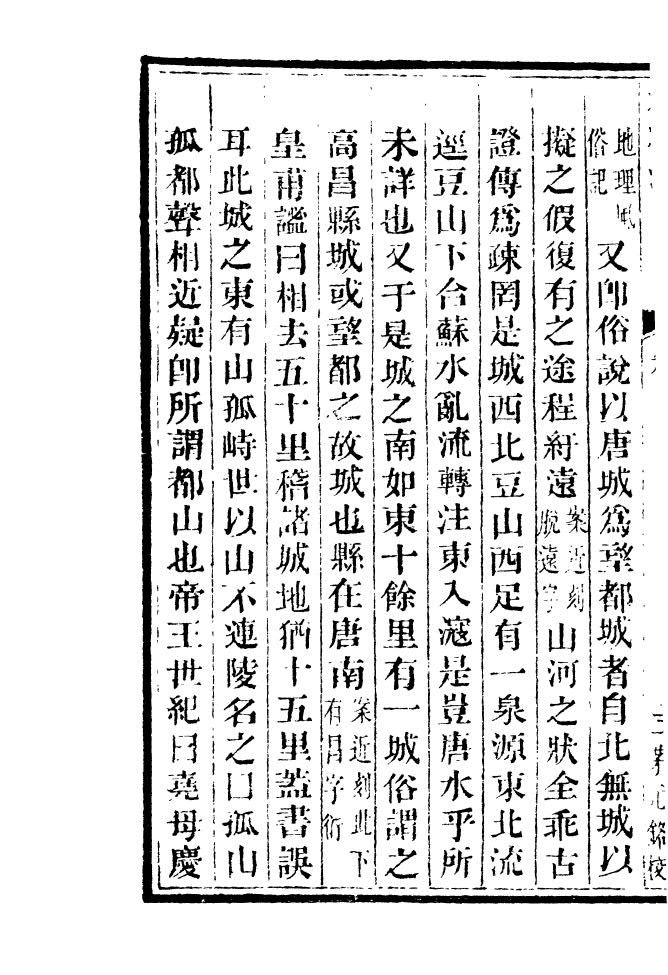 地理風俗記又即俗說以唐城爲望都城者自北無城以
擬之假復有之途程紆遠案近刻脫遠字山河之狀全乖古
證傳爲疎罔是城西北豆山西足有一泉源東北流
逕豆山下合蘇水亂流轉注東入滱是豈唐水乎所
未詳也又于是城之南如東十餘里有一城俗謂之
高昌縣城或望都之故城也縣在唐南案近刻此下有曰字衍
皇甫謐曰相去五十里稽諸城地猶十五里蓋書誤
耳此城之東有山孤峙世以山不連陵名之曰孤山
孤都聲相近疑即所謂都山也帝王世紀曰堯母慶